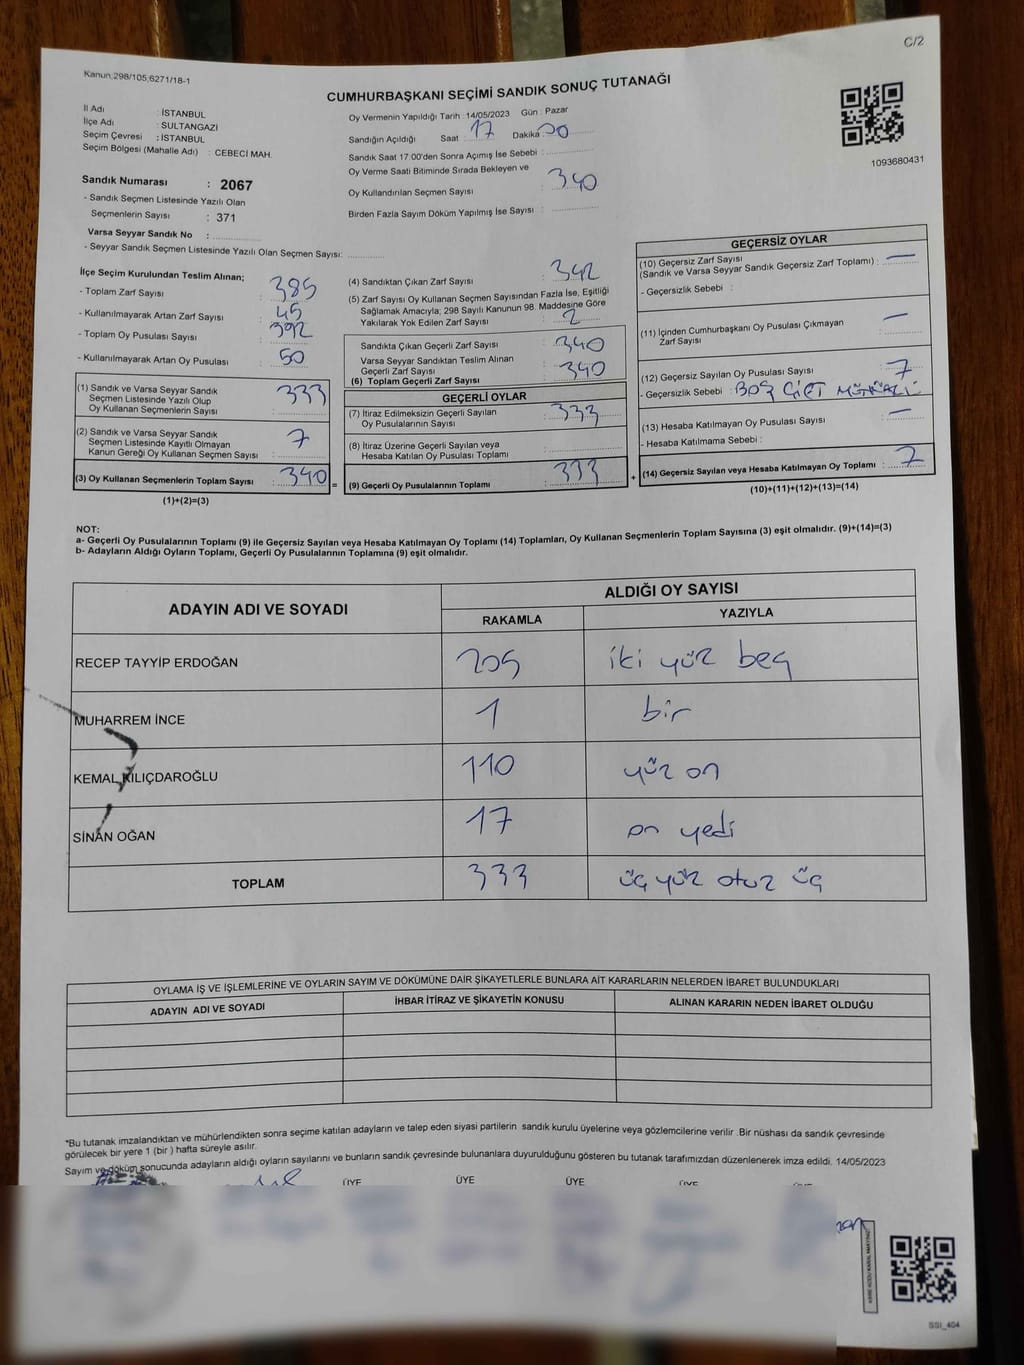 C/2
Kanun,298/105,6271/18-1
CUMHURBAŞKANI SEÇİMİ SANDIK SONUÇ TUTANAĞI
1093680431
İl Adı : İSTANBUL
İlçe Adı : SULTANGAZI
Seçim Çevresi : İSTANBUL
Seçim Bölgesi (Mahalle Adı) : CEBECİ MAH.
Sandık Numarası : 2067
- Sandık Seçmen Listesinde Yazılı Olan
Seçmenlerin Sayısı : 371
Varsa Seyyar Sandık No :
- Seyyar Sandık Seçmen Listesinde Yazılı Olan Seçmen Sayısı:
Oy Vermenin Yapıldığı Tarih :14/05/2023 Gün : Pazar
Sandığın Açıldığı Saat : 17 Dakika :
Sandık Saat 17:00'den Sonra Açımış İse Sebebi :
Oy Verme Saati Bitiminde Sırada Bekleyen ve
Oy Kullandırılan Seçmen Sayısı : 340
Birden Fazla Sayım Döküm Yapılmış İse Sayısı :
İlçe Seçim Kurulundan Teslim Alınan;
- Toplam Zarf Sayısı : 385
- Kullanılmayarak Artan Zarf Sayısı : 45
- Toplam Oy Pusulası Sayısı : 392
- Kullanılmayarak Artan Oy Pusulası : 50
(1) Sandık ve Varsa Seyyar Sandık
Seçmen Listesinde Yazılı Olup
Oy Kullanan Seçmenlerin Sayısı : 333
(2) Sandık ve Varsa Seyyar Sandık
Seçmen Listesinde Kayıtlı Olmayan
Kanun Gereği Oy Kullanan Seçmen Sayısı : 7
(3) Oy Kullanan Seçmenlerin Toplam Sayısı : 340
(1)+(2)=(3)
(4) Sandıktan Çıkan Zarf Sayısı : 342
(5) Zarf Sayısı Oy Kullanan Seçmen Sayısından Fazla İse, Eşitliği
Sağlamak Amacıyla; 298 Sayılı Kanunun 98. Maddesine Göre
Yakılarak Yok Edilen Zarf Sayısı : 2
Sandıkta Çıkan Geçerli Zarf Sayısı : 340
Varsa Seyyar Sandıktan Teslim Alınan
Geçerli Zarf Sayısı
(6) Toplam Geçerli Zarf Sayısı : 340
GEÇERLİ OYLAR
(7) İtiraz Edilmeksizin Geçerli Sayılan
Oy Pusulalarının Sayısı : 333
(8) İtiraz Üzerine Geçerli Sayılan veya
Hesaba Katılan Oy Pusulası Toplamı :
=
(9) Geçerli Oy Pusulalarının Toplamı : 333
+
GEÇERSİZ OYLAR
(10) Geçersiz Zarf Sayısı
(Sandık ve Varsa Seyyar Sandık Geçersiz Zarf Toplamı) : —
- Geçersizlik Sebebi :
(11) İçinden Cumhurbaşkanı Oy Pusulası Çıkmayan
Zarf Sayısı : —
(12) Geçersiz Sayılan Oy Pusulası Sayısı : 7
- Geçersizlik Sebebi : BOŞ ÇİFT
(13) Hesaba Katılmayan Oy Pusulası Sayısı : —
- Hesaba Katılmama Sebebi :
(14) Geçersiz Sayılan veya Hesaba Katılmayan Oy Toplamı : 7
(10)+(11)+(12)+(13)=(14)
NOT:
a- Geçerli Oy Pusulalarının Toplamı (9) ile Geçersiz Sayılan veya Hesaba Katılmayan Oy Toplamı (14) Toplamları, Oy Kullanan Seçmenlerin Toplam Sayısına (3) eşit olmalıdır. (9)+(14)=(3)
b- Adayların Aldığı Oyların Toplamı, Geçerli Oy Pusulalarının Toplamına (9) eşit olmalıdır.
ADAYIN ADI VE SOYADI
ALDIĞI OY SAYISI
RAKAMLA YAZIYLA
RECEP TAYYİP ERDOĞAN 205 iki yüz beş
MUHARREM İNCE 1 bir
KEMAL KILIÇDAROĞLU 110 yüz on
SİNAN OĞAN 17 on yedi
TOPLAM 333 üç yüz otuz üç
OYLAMA İŞ VE İŞLEMLERİNE VE OYLARIN SAYIM VE DÖKÜMÜNE DAİR ŞİKAYETLERLE BUNLARA AİT KARARLARIN NELERDEN İBARET BULUNDUKLARI
ADAYIN ADI VE SOYADI İHBAR İTİRAZ VE ŞİKAYETİN KONUSU ALINAN KARARIN NEDEN İBARET OLDUĞU
*Bu tutanak imzalandıktan ve mühürlendikten sonra seçime katılan adayların ve talep eden siyasi partilerin sandık kurulu üyelerine veya gözlemcilerine verilir .Bir nüshası da sandık çevresinde
görülecek bir yere 1 (bir ) hafta süreyle asılır.
Sayım ve döküm sonucunda adayların aldığı oyların sayılarını ve bunların sandık çevresinde bulunanlara duyurulduğunu gösteren bu tutanak tarafımızdan düzenlenerek imza edildi. 14/05/2023
ÜYE ÜYE ÜYE
SSI_404